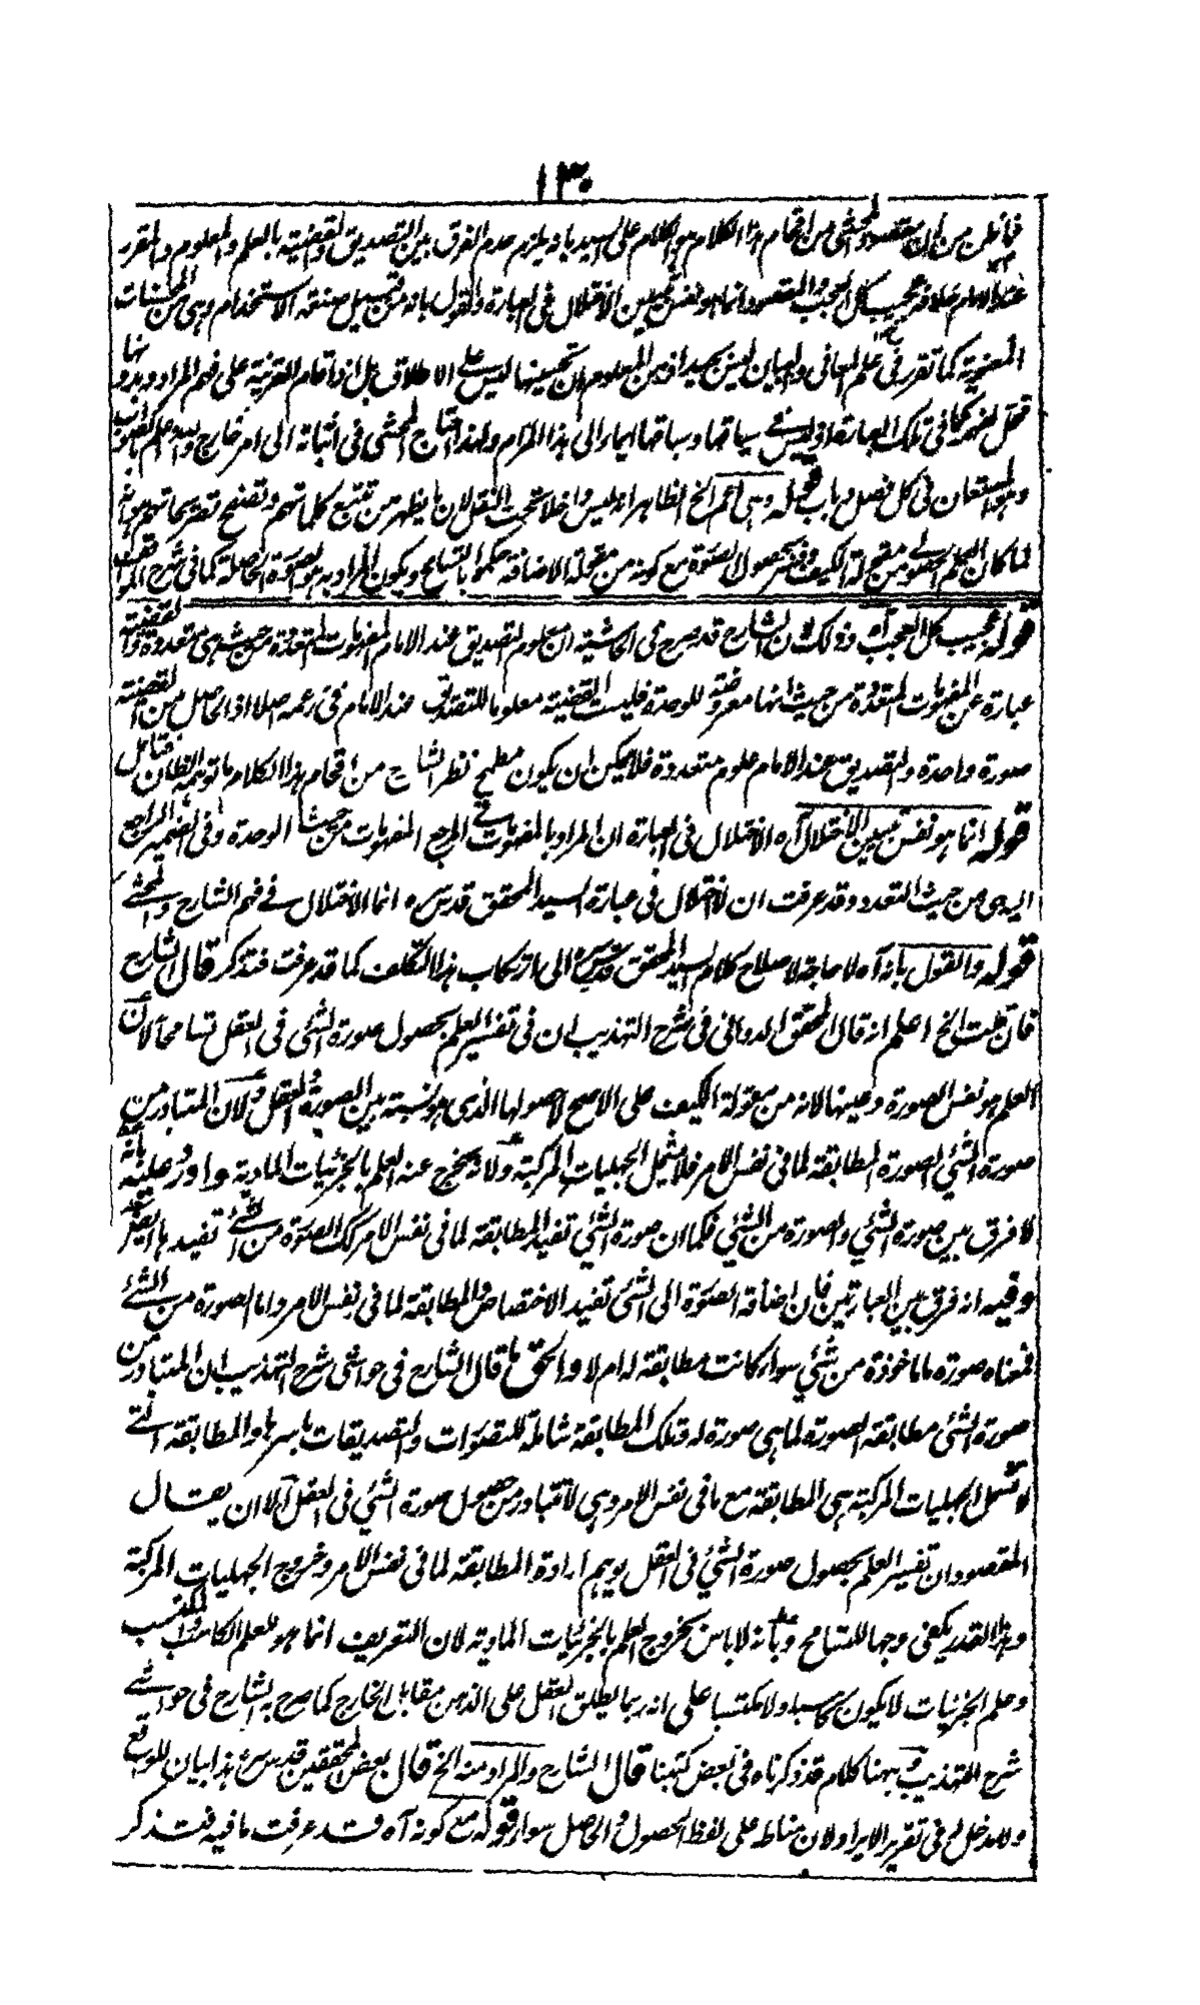 ١٣٠
فما ظن من أن مقصود المحشى من اقحام هذا الكلام هو الكلام على السيد بانه يلزم عدم الفرق بين التصديق والقضية بالعلم والمعلوم والمقرر
عند الامام خلافه عجيب كل العجب والمقصود انما هو نفس تبيين الاختلال فى العبارة والقول بانه من قبيل صنعة الاستخدام وهى من المحسنات
المعنوية كما تقرر فى علم المعانى والبيان ليس بسديد اذ من المعلوم ان تحسينها ليس على الاطلاق بل اذا قام القرينة على فهم المراد وبدونها
مخل لفهم كما فى تلك العبارة اذ ليس فى سياقها وسباقها ايماء الى هذا المرام ولهذا احتاج المحشى فى اثباته الى امر خارج والله اعلم بالصواب
وهو المستعان فى كل فصل وباب قوله وهى اعم الخ الظاهر انه ليس داخلا تحت النقل لان ما يظهر من تتبع كلماتهم وتصفح تصريحاتهم هو انه
لما كان العلم الحصولى من مقولة الكيف وفسر بحصول الصورة مع كونه من مقولة الاضافة حكموا بالتسامح ويكون المراد به هو الصورة الحاصلة كما فى شرح المواقف
قوله عجيب كل العجب آه وذلك لان الشارح قد صرح فى الحاشية ان معلوم التصديق عند الامام المفهومات المتعددة من حيث هى متعددة والقضية
عبارة عن المفهومات المتعددة من حيث انها معروضة للوحدة فليست القضية معلوما للتصديق عند الامام فى زعمه اصلا اذ الحاصل من القضية
صورة واحدة والتصديق عند الامام علوم متعددة فلا يمكن ان يكون مطمح نظر الشارح من اقحام هذا الكلام ما توهمه الظان فتامل
قوله انما هو نفس تبيين الاختلال آه الاختلال فى العبارة ان المراد بالمفهومات فى المرجع المفهومات من حيث الوحدة وفى الضمير الراجع
اليه هى من حيث التعدد وقد عرفت ان لا اختلال فى عبارة السيد المحقق قدس سره انما الاختلال فى فهم الشارح والمحشى
قوله والقول بانه آه لا حاجة لاصلاح كلام السيد المحقق قدس سره الى ارتكاب هذا التكلف كما قد عرفت فتذكر قال الشارح
فان قلت الخ اعلم انه قال المحقق الدوانى فى شرح التهذيب ان فى تفسير العلم بحصول صورة الشئ فى العقل تسامحا لان
العلم هو نفس الصورة وعينها لانه من مقولة الكيف على الاصح لا حصولها الذى هو نسبة بين الصورة والعقل ولان المتبادر من
صورة الشئ الصورة المطابقة لما فى نفس الامر فلا يشمل الجهليات المركبة ولانه يخرج عنه العلم بالجزئيات المادية واورد عليه بانه
لا فرق بين صورة الشئ والصورة من الشئ فكما ان صورة الشئ تفيد المطابقة لما فى نفس الامر كذلك الصورة من الشئ تفيدها
وفيه انه فرق بين العبارتين فان اضافة الصورة الى الشئ تفيد الاختصاص والمطابقة لما فى نفس الامر واما الصورة من الشئ
فمعناه صورة ما ماخوذة من شئ سواء كانت مطابقة له ام لا والحق ما قال الشارح فى حواشى شرح التهذيب ان المتبادر من
صورة الشئ مطابقة الصورة لما هى صورة له فتلك المطابقة شاملة للتصورات والتصديقات باسرها والمطابقة التى
لا تشمل الجهليات المركبة هى المطابقة مع ما فى نفس الامر وهى لا تتبادر من حصول صورة الشئ فى العقل الا ان يقال
المقصود ان تفسير العلم بحصول صورة الشئ فى العقل يوهم ارادة المطابقة لما فى نفس الامر وخروج الجهليات المركبة
وهذا القدر يكفى وجها للتسامح وبانه لا باس بخروج العلم بالجزئيات المادية لان التعريف انما هو للعلم الكاسب والمكتسب
وعلم الجزئيات لا يكون كاسبا ولا مكتسبا على انه ربما يطلق العقل على الذهن مقابل الخارج كما صرح به الشارح فى حواشى
شرح التهذيب وههنا كلام قد ذكرناه فى بعض كتبنا قال الشارح والمراد منه الخ قال بعض المحققين قدس سره هذا بيان للواقع
ولا دخل له فى تقرير الايراد لان مناطه على لفظ الحصول والحاصل سواء قوله مع كونه آه قد عرفت ما فيه فتذكر